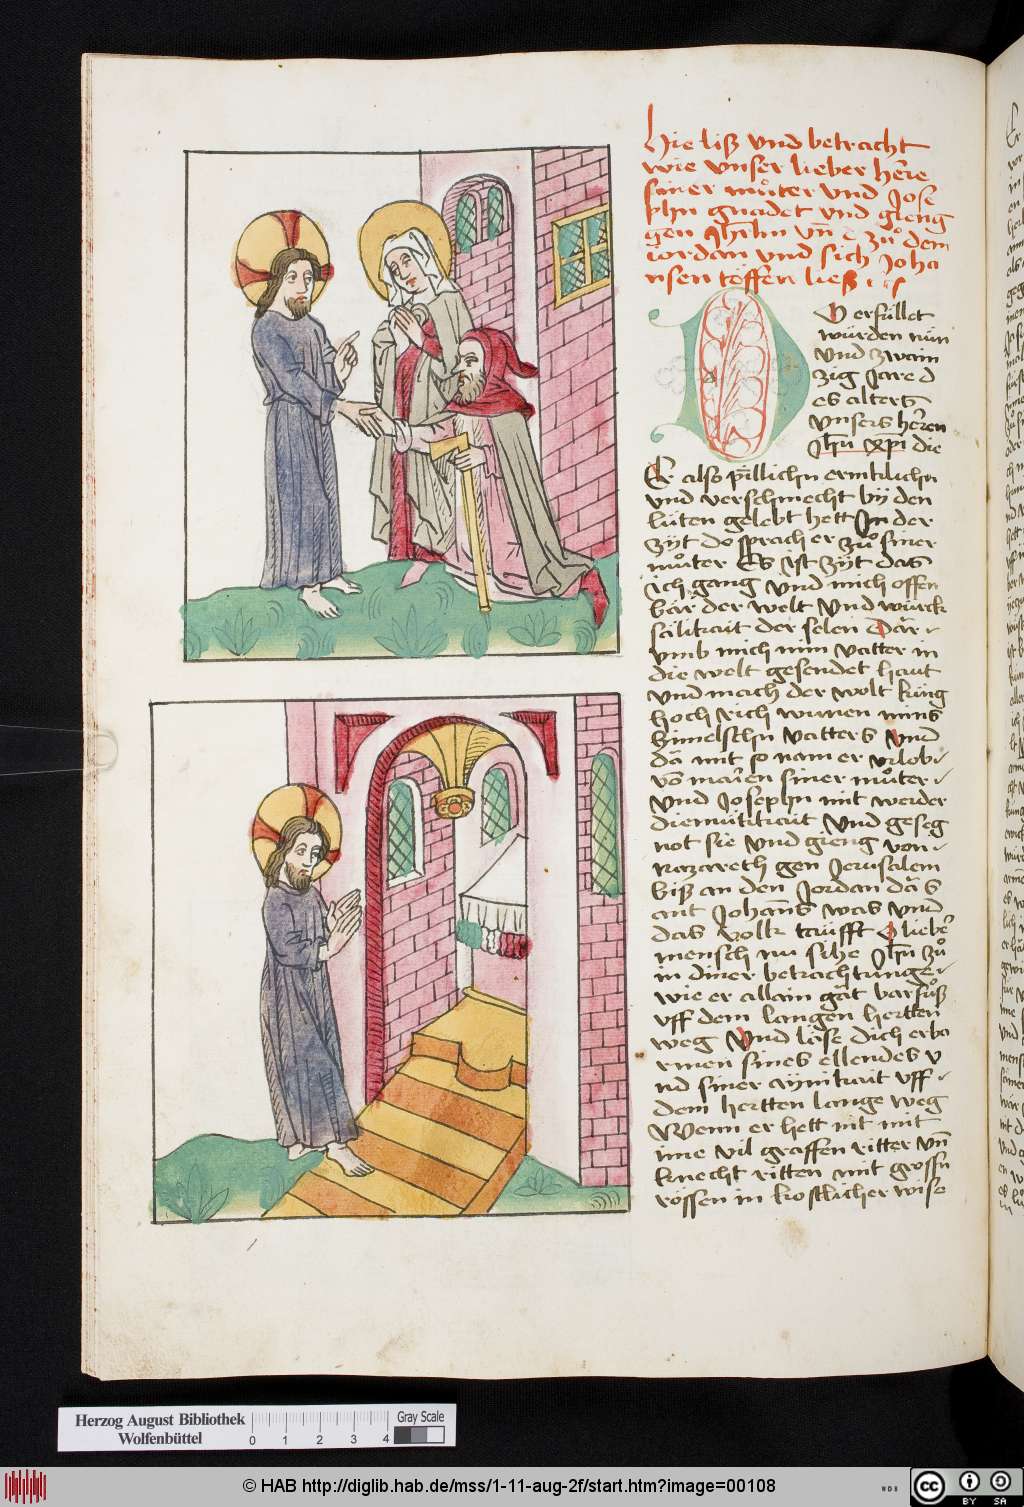 Hie liß vnd betracht
wie vnser lieber herre
siner muͦter vnd Jose
phn gnadet vnd gieng
gen Jh̄rlm vn̄ zuͦ dem
iordan vnd sich Joha
nsen töffen ließ
D erfüllet
würden nün
vnd zwain
zig Jare d
es alters
vnsers herren
Jhū xp̄i die
Er also
vnd verschmecht by den
lüten gelebt hett In der
zyt do sprach er zuͦ siner
muͦter Es ist zyt das
ich gang vnd mich offen
bar der welt vnd würck
sälikait der selen Dar
vmb mich min vatter in
die welt gesendet haut
vnd mach der wolt küng
hoch rich mins
himelschn vatters vnd
da mit so nam er vrlob
vō marien siner muͦter
vnd Josephn mit werder
diemütikait vnd geseg
not sie vnd gieng von
nazareth gen Jerusalem
biß an den Jordan da s
ant Johan̄s was vnd
das volk taüfft O lieber
mensch nu sihe Jhū zuͦ
in diner betrachtunge
wie er allain gat barfuͦß
vff dem langen hertten
weg Vnd lase dich erba
rmen sines ellendes v
nd siner ainikait vff
dem hertten lange weg
Wenn er hett nit mit
ime vil graffen ritter vn̄
knecht ritten mit grossn
rossen in kostlicher wise
Herzog August Bibliothek
Wolfenbüttel
0 1 2 3 4
Gray Scale
© HAB http://diglib.hab.de/mss/1-11-aug-2f/start.htm?image=00108
WDB
cc BY SA